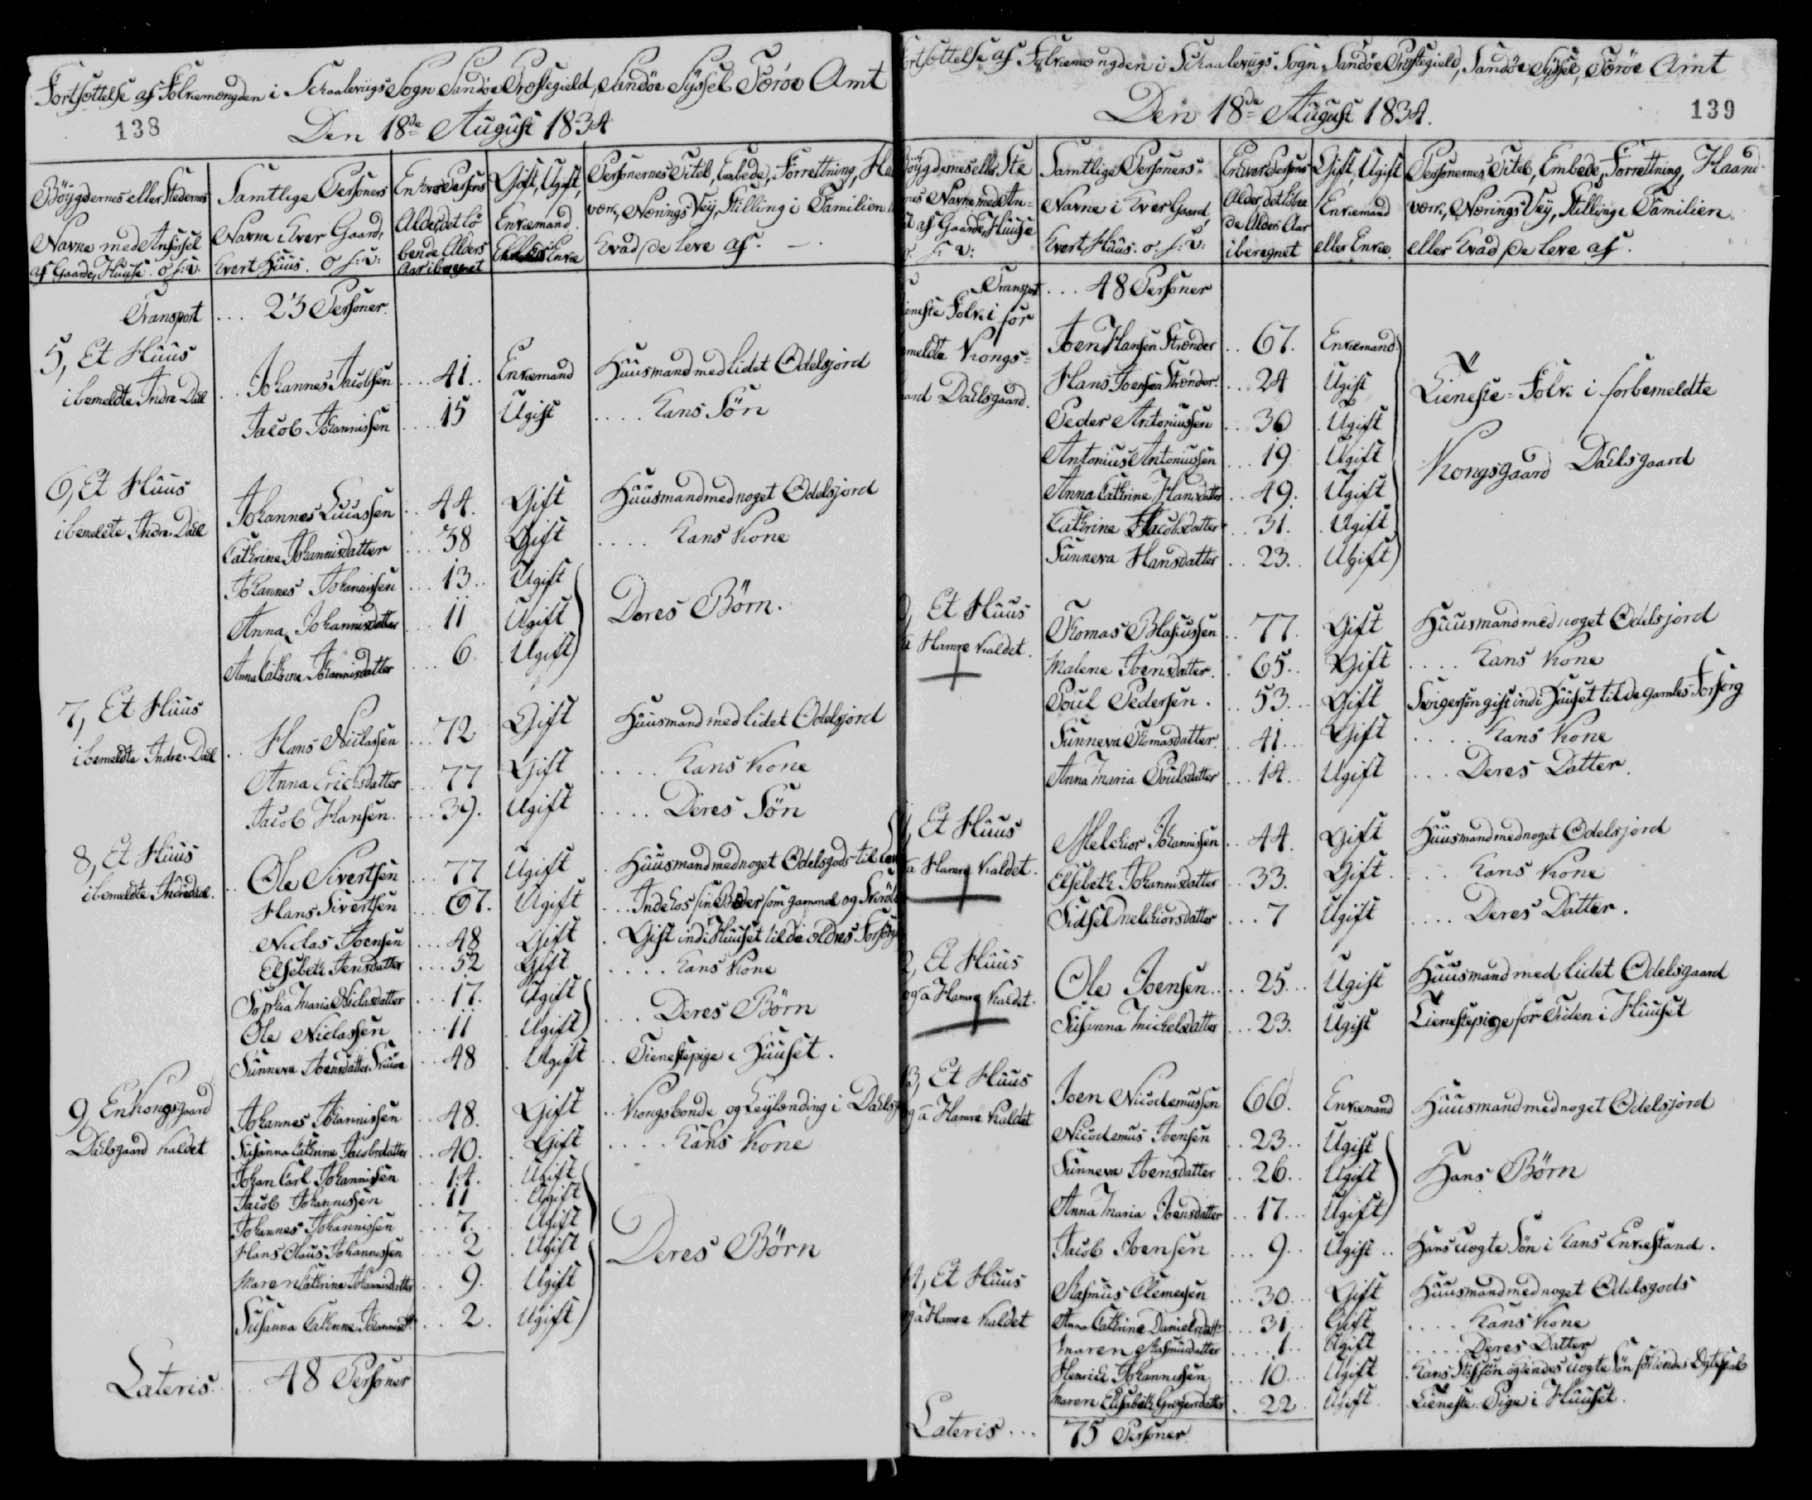 Fortsættelse af Folkemængden i Schaalevigs Sogn Sandöe Præstegield, Sandöe Syssel Færöe Amt
138
Den 18de August 1834
Böygdernes eller Stedernes Navne med Antal af Gaarde, Huuse o: s: v: | Samtlige Personers Navne i hver Gaard, hvert Huus. o: s: v: | Enhver Persons Alder, det löbende Alders Aar iberegnet | Gift, Ugift, Enkemand eller Enke | Personernes Titel, Embede, Forrettning, værk, Nærings Vey, Stilling i Familien hvad de leve af.
Transport ... 23 Personer
5, Et Huus
i bemeldte Indre Dal .. Johannes Jacobsen ... 41 .. Enkemand Huusmand med lidet Odelsjord
Jacob Johannissen ... 15 Ugift .... hans Sön
6, Et Huus
i bemeldte Indre Dal Johannes Lucassen .. 44. Gift Huusmand med noget Odelsjord
Cathrine Johannisdatter ... 38 Gift .... hans Kone
Johannes Johannissen ... 13 .. Ugift
Anna Johannisdatter ... 11 Ugift Deres Börn.
Anna Cathrine Johannisdatter ... 6 Ugift
7, Et Huus
i bemeldte Indre Dal .. Hans Niclassen ... 72 Gift Huusmand med lidet Odelsjord
Anna Erichsdatter ... 77 Gift .... hans Kone
Jacob Hansen ... 39. Ugift .... Deres Sön
8, Et Huus
i bemeldte Indredal .. Ole Sivertsen ... 77 Ugift Huusmand med noget Odelsgods til
Hans Sivertsen ... 67. Ugift .. Inde hos sin Broder som gammel og
Niclas Joensen ... 48 Gift . Gift ind i Huuset til de ældres
Elsebeth Jensdatter ... 52 Gift .... hans Kone
Sophia Maria Niclasdatter ... 17. Ugift
Ole Niclassen ... 11 Ugift ... Deres Börn
Sunneva Joensdatter ... 48 Ugift .. Tienestepige i Huuset.
9, En Kongsgaard
Dalsgaard kaldet Johannes Johannissen .. 48. Gift .. Kongsbonde og Leylænding i
Susanna Cathrine Jacobsdatter .. 40. Gift .... hans Kone
Johan Carl Johannissen .. 14. Ugift
Jacob Johannissen .. 11 Ugift
Johannes Johannissen .. 7. Ugift
Hans Claus Johannissen ... 2 Ugift Deres Börn
Maren Cathrine Johannisdatter .. 9. Ugift
Susanna Cathrine .. 2. Ugift
Lateris .. 48 Personer
Fortsættelse af Folkemængden i Schaalevigs Sogn Sandöe Præstegield, Sandöe Syssel, Færöe Amt
139
Den 18de August 1834.
Böygdernes eller Ste Navne med An- af Gaarde, Huuse s: v: | Samtlige Personers Navne i hver Gaard, hvert Huus. o: s: v: | Enhver Persons Alder det löbende Alders Aar iberegnet | Gift, Ugift Enkemand eller Enke. | Personernes Titel, Embede, Forrettning, Haand værk, Nærings Vey, Stilling i Familien eller hvad de leve af.
Transport ... 48 Personer
Folk i for
meldte Kongs- Joen Hansen Strænder .. 67. Enkemand
Hans Joensen Strænder .. 24 Ugift Tieneste-Folk i forbemeldte
Dalsgaard. Peder Antoniussen .. 30 Ugift
Antonius Antoniussen ... 19 Ugift Kongsgaard Dalsgaard
Anna Cathrine Hansdatter .. 49. Ugift
Cathrine Jacobsdatter .. 31. Ugift
Sunneva Hansdatter .. 23. Ugift
Et Huus
Hamre kaldet. Thomas Blasiussen .. 77. Gift Huusmand med noget Odelsjord
Malene Joensdatter . 65. Gift .... hans Kone
Poul Pedersen. . 53. Gift Svigersön gift ind i Huuset til de gamles Forsorg
Sunneva Thomasdatter .. 41 ... Gift .... hans Kone
Anna Maria Poulsdatter .. 14. Ugift ... Deres Datter.
Et Huus
Hamre kaldet. Melchior Johannissen .. 44. Gift Huusmand med noget Odelsjord
Elsebeth Johannisdatter .. 33. Gift .... hans Kone
Sidsel Melchiorsdatter ... 7 Ugift .... Deres Datter.
Et Huus
Hamre kaldet. Ole Joensen .. 25. Ugift Huusmand med lidet Odelsgaard
Susanna Michelsdatter ... 23. Ugift Tienestepige for Tiden i Huuset
13, Et Huus
Hamre kaldet Joen Nicodemussen 66. Enkemand Huusmand med noget Odelsjord
Nicodemus Joensen .. 23 .. Ugift
Sunneva Joensdatter .. 26 .. Ugift Hans Börn
Anna Maria Joensdatter .. 17 ... Ugift
Jacob Joensen ... 9 .. Ugift .. Hans uægte Sön i hans Enkestand.
14, Et Huus
Hamre kaldet Rasmus Clemesen ... 30 ... Gift Huusmand med noget Odelsgods
Anna Cathrine Danielsdatter ... 31 .. Gift .... hans Kone
Maren Rasmusdatter .... 1 .. Ugift ..... Deres Datter
Henrich Johannissen ... 10 ... Ugift . Hans Stifsön og hendes uægte Sön för hendes Egteskab
Maren Elisabeth .. 22 Ugift . Tieneste Pige i Huuset.
Lateris ... 75 Personer